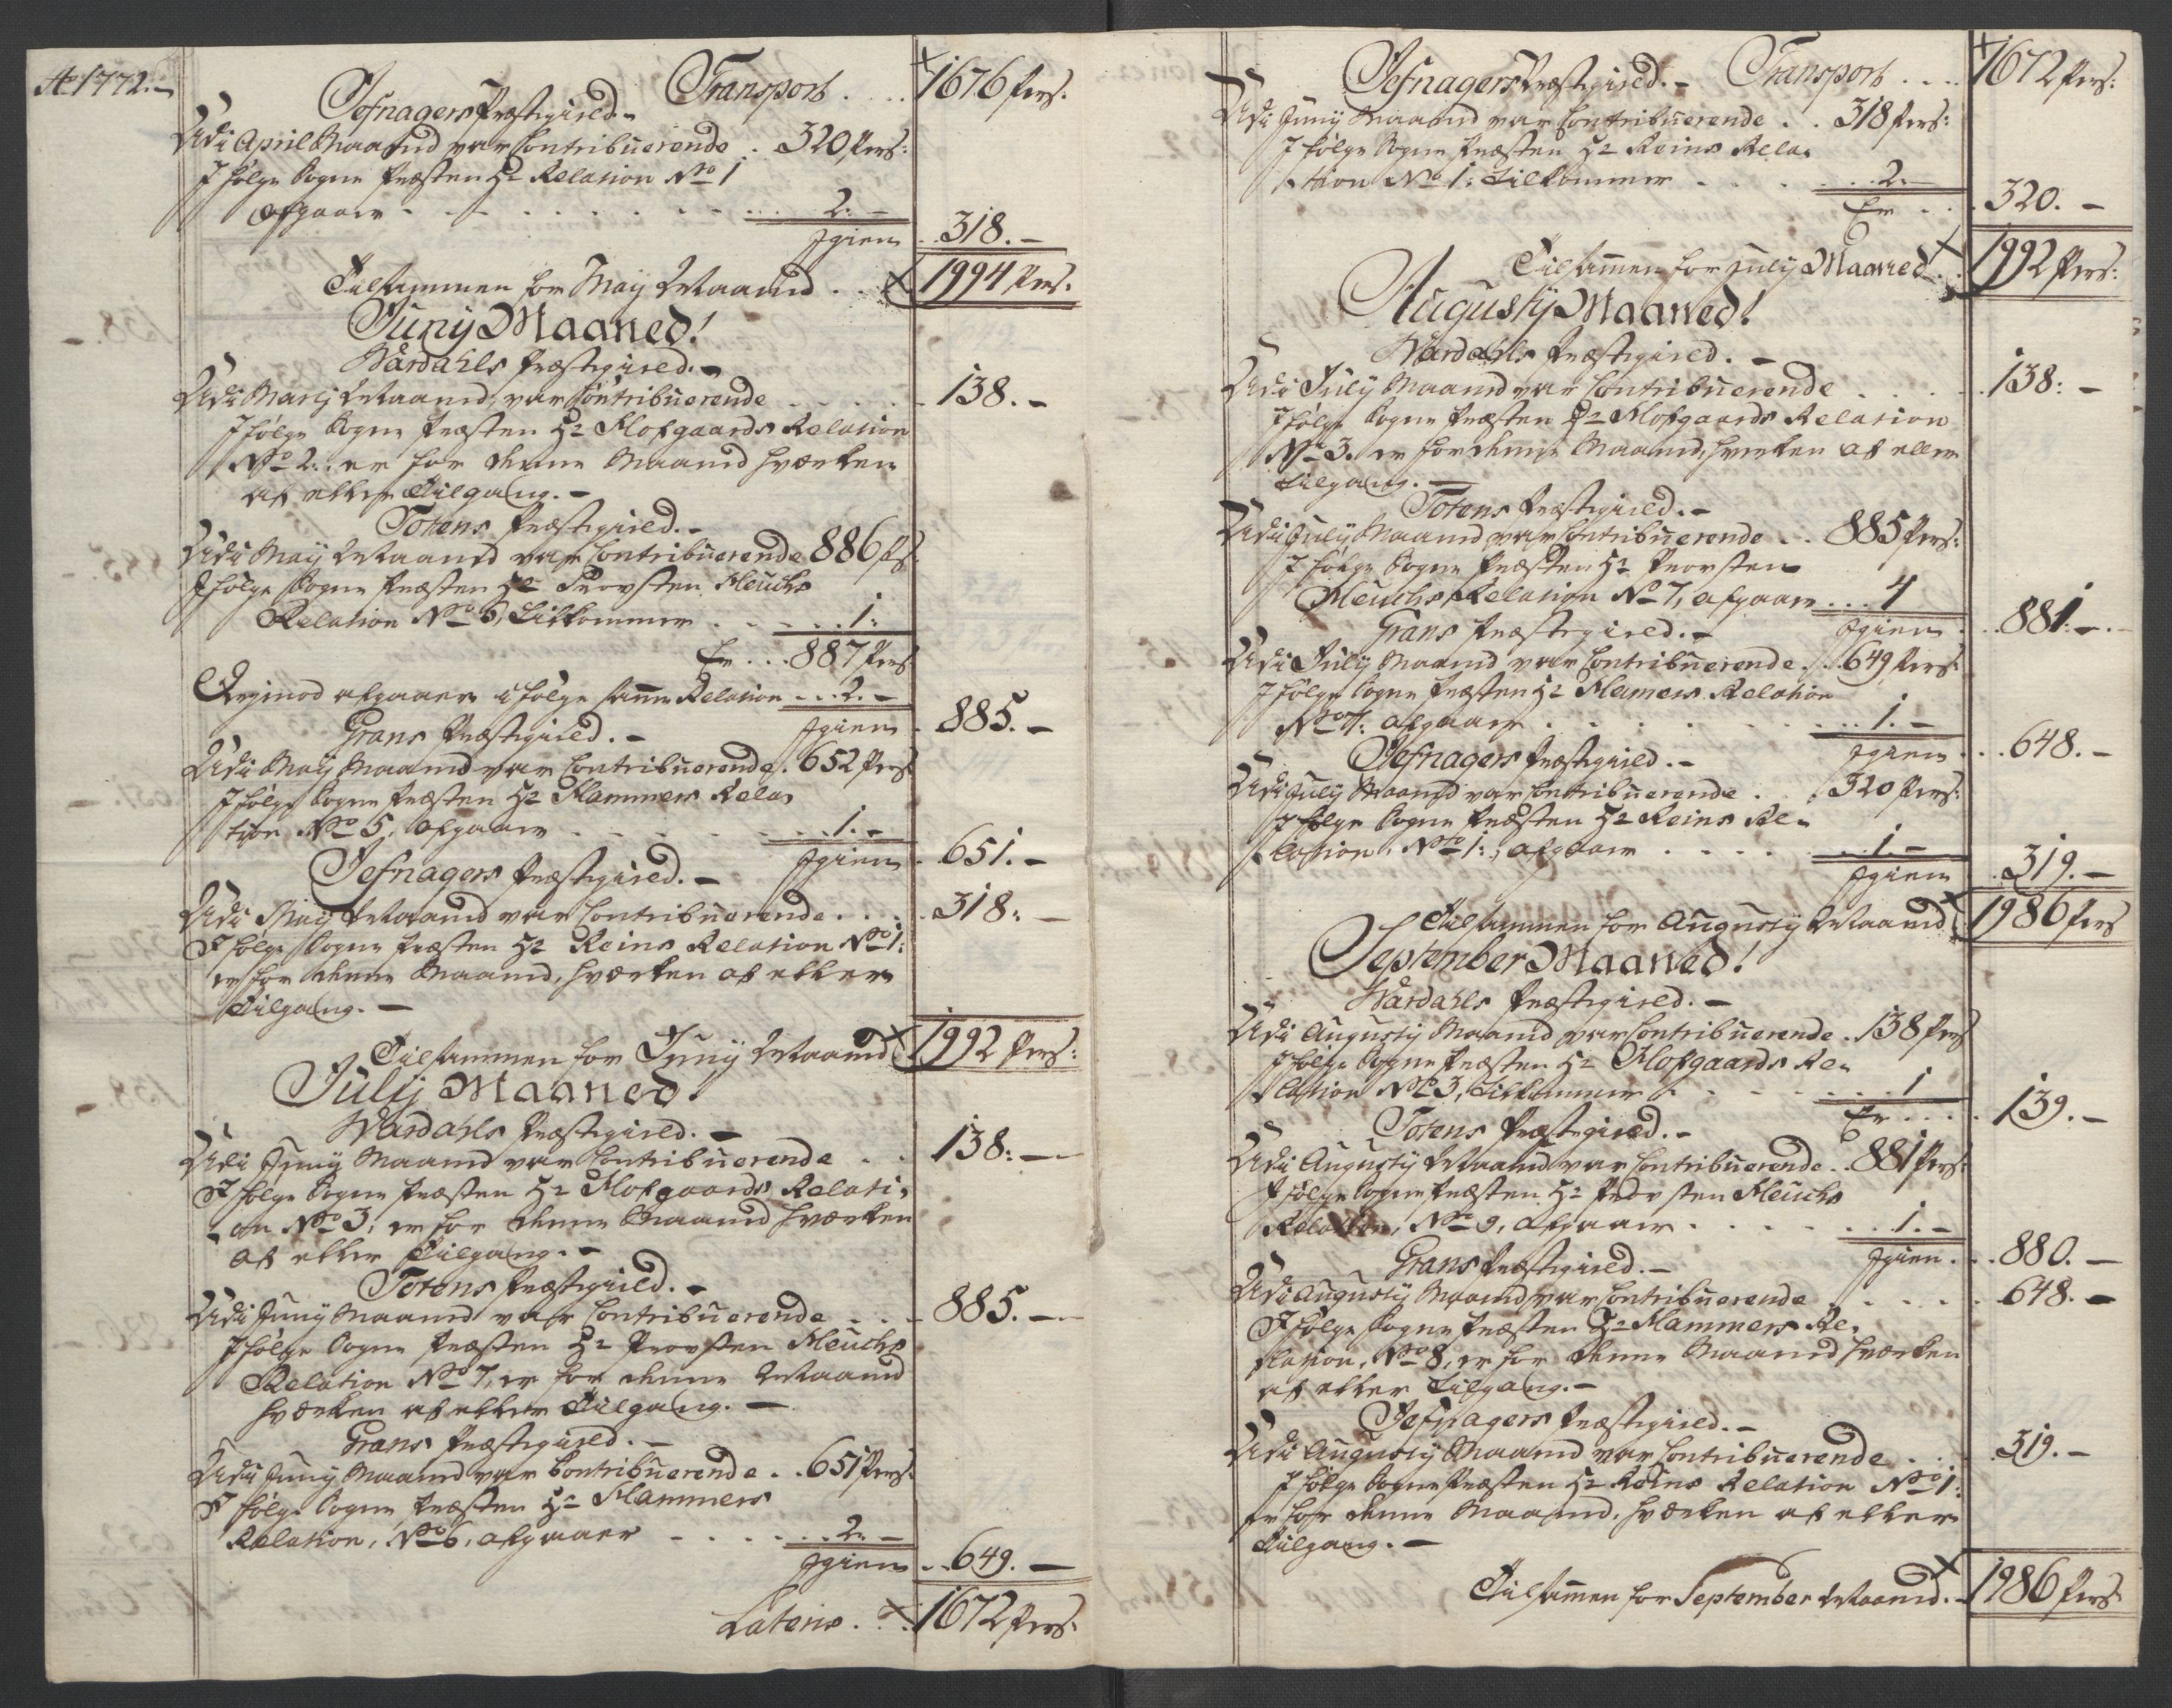 Ao 1772.-
Transport . . . 1676 Pers:
Jefnagers Præstegield.-
Udi April Maaned var Contribuerende . 320 Pers:
Ifølge Sogne Præsten Hr Relation No 1
afgaaer - - - 2.-
Igien 318.-
Tilsammen for May Maaned . . 1994 Pers.
Juny Maaned!
Wardahls Præstegield.-
Udi Maij Maaned var Contribuerende - - - 138.-
Ifølge Sogne Præsten Hr Klofgaards Relation
No 2. er for denne Maaned hværken
af eller Tilgang.-
Totens Præstegield.-
Udi Maij Maaned var Contribuerende 886 Ps.
Ifølge Sogne Præsten Hr Provsten Heuchs
Relation No 6, Tilkommer . . . 1:
Er . . . 887 Pers
Derjmod afgaaer i følge samme Relation - - . 2.-
Igien 885.-
Grans Præstegield.-
Udi Maij Maaned var Contribuerende . 652 Pers
Ifølge Sogne Præsten Hr Hammers Rela-
tion No 5, afgaaer - - - 1.-
Igien 651.-
Jefnagers Præstegield.-
Udi Maij Maaned var Contribuerende . . . 318:-
Ifølge Sogne Præsten Hr Reins Relation No 1:
er for denne Maaned, hværken af eller
Tilgang.-
Tilsammen for Juny Maaned 1992 Pers:
July Maaned.
Wardahls Præstegield.-
Udi Juny Maaned var Contribuerende . . 138:-
Ifølge Sogne Præsten Hr Klofgaards Relati-
on No 3, er for denne Maaned hværken
af eller Tilgang.-
Totens Præstegield.-
Udi Juny Maaned var Contribuerende . . - 885.-
Ifølge Sogne Præsten Hr Provsten Heuchs
Relation No 7, er for denne Maaned
hværken af eller Tilgang.-
Grans Præstegield.-
Udi Juny Maaned var Contribuerende . . 651 Pers:
Ifølge Sogne Præsten Hr Hammers
Relation, No 6, afgaaer - - . . . 2.-
Igien . . 649.-
Lateris . . 1672 Pers:
Jefnagers Præstegield.- Transport . . . 1672 Pers:
Udi Juny Maaned var Contribuerende . . 318 Pers:
Ifølge Sogne Præsten Hr Reins Rela-
tion No 1: Tilkommer . . . 2.-
Er . . 320.-
Tilsammen for July Maaned . . 1992 Pers:
Augusty Maaned!
Wardahls Præstegield.-
Udi July Maaned var Contribuerende . . . 138:-
Ifølge Sogne Præsten Hr Klofgaards Relation
No 3. er for denne Maaned, hværken af eller
Tilgang.-
Totens Præstegield.-
Udi July Maaned var Contribuerende . . 885 Pers:
Ifølge Sogne Præsten Hr Provsten
Heuchs Relation No 7, afgaaer . . . 4
Igien . . . 881.-
Grans Præstegield.-
Udi July Maaned var Contribuerende . . 649 Pers:
Ifølge Sogne Præsten Hr Hamers Relation
No 7: afgaaer . . . 1.-
Igien . . . 648.-
Jefnagers Præstegield.-
Udi July Maaned var Contribuerende . . 320 Pers:
Ifølge Sogne Præsten Hr Reins Re-
lation, No 1:, afgaaer . . . 1-
Igien . 319.-
Tilsammen for Augusty Maaned 1986 Pers
September Maaned!
Wardahls Præstegield.-
Udi Augusty Maaned var Contribuerende . 138 Pers
Ifølge Sogne Præsten Hr Klofgaards Re-
lation No 3, Tilkommer . . . 1
Er . . . 139.-
Totens Præstegield.-
Udi Augusty Maaned var Contribuerende . . 881 Pers:
Ifølge Sogne Præsten Hr Provsten Heuchs
Relation, No 9, afgaaer . . . 1.-
Igien . . . 880.-
Grans Præstegield.-
Udi Augusty Maaned var Contribuerende - - - 648.-
Ifølge Sogne Præsten Hr Hammers Re-
lation, No 8, er for denne Maaned hværken
af eller Tilgang.-
Jefnagers Præstegield.-
Udi Augusty Maaned var Contribuerende . . . 319.-
Ifølge Sogne Præsten Hr Reins Relation No 1:
er for denne Maaned, hværken af eller
Tilgang.-
Tilsammen for September Maaned.- 1986 Pers: